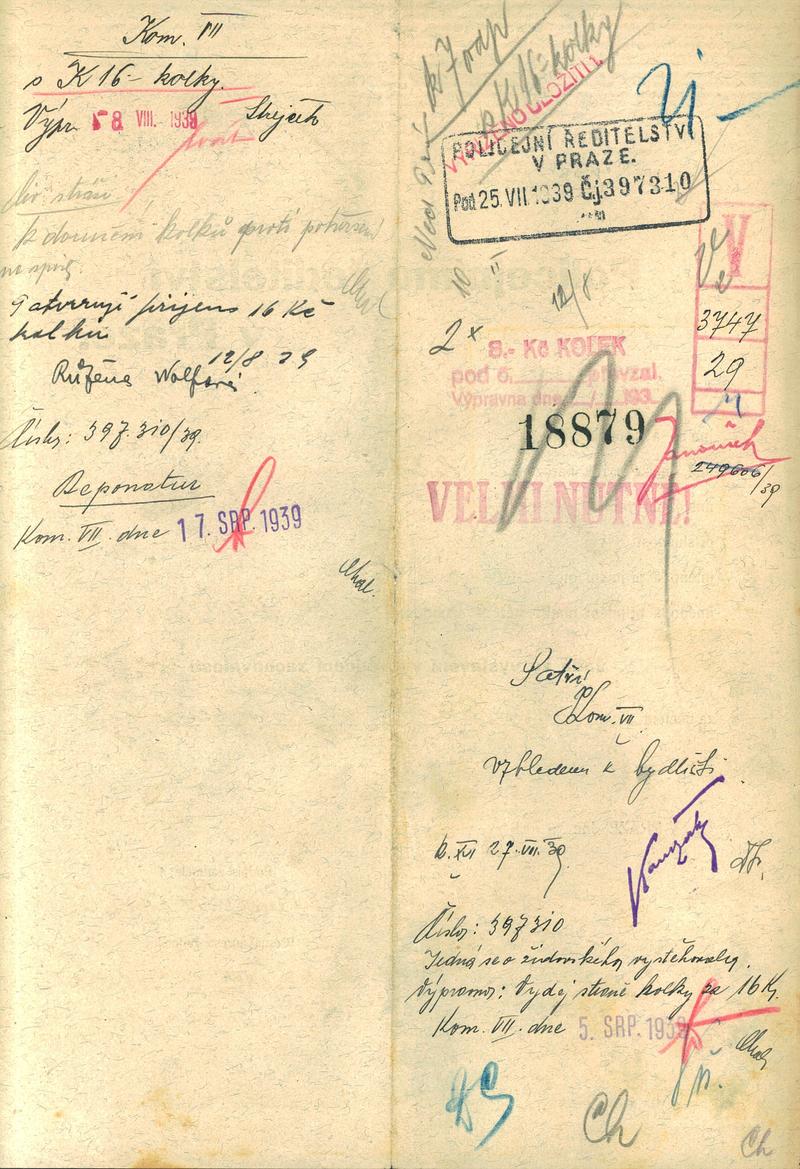 Kom. VII
s K 16- kolky.
Výpr. 8 VIII. 1939
k doručení kolků proti potvrzení
na spisu.
Potvrzuji příjem 16 Kč
kolků
12/8 39
Růžena Wolfová
Číslo: 397.310/39.
Deponatur
Kom. VII. dne 17. SRP. 1939
Chal.
k 7 odp
s K 16- kolky
VYŘÍZENO ULOŽITI!
POLICEJNÍ ŘEDITELSTVÍ
V PRAZE.
Pod 25.VII.1939 Čj 397310
V
3747
29
12/8
2x
8.- Kč KOLEK
pod č. převzal.
Výpravna dne 193
18879
249606/39
VELMI NUTNÉ!
Patří
Kom. VII
vzhledem k bydlišti
k. XII 27.VII.39
Číslo: 397310
Jedná se o židovského vystěhovalce.
Výpravna: Vydej straně kolky za 16 K.
Kom. VII. dne 5. SRP. 1939
Chal.
Ch
Ch